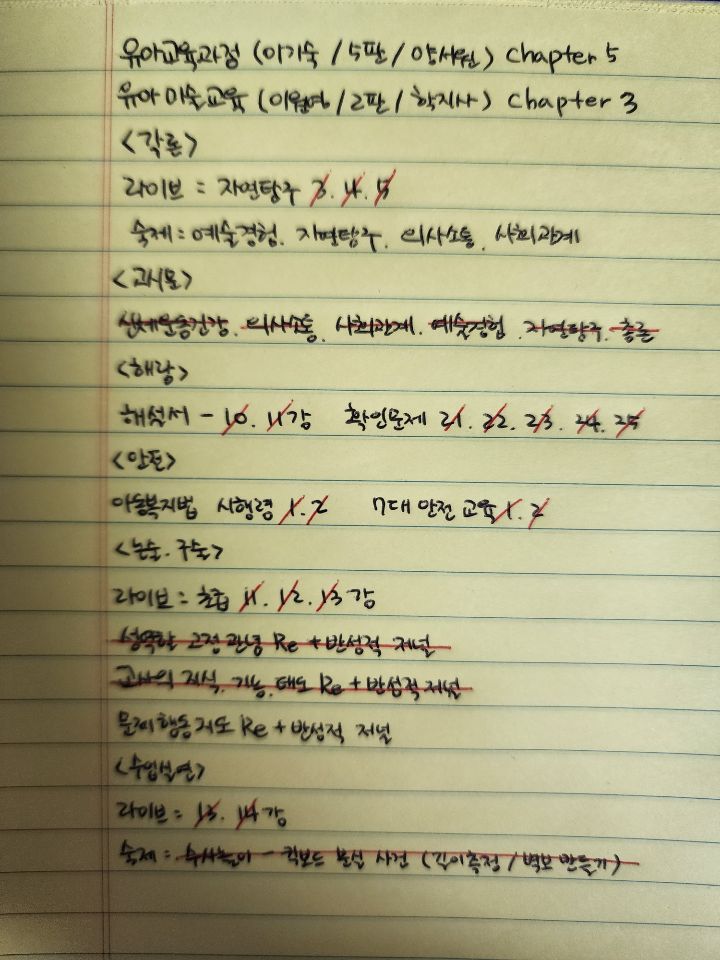 유아교육과정 (이기숙 / 5판 / 양서원) Chapter 5
유아미술교육 (이원영 / 2판 / 학지사) Chapter 3
<각론>
라이브 : 자연탐구 3. 4. 5
숙제 : 예술경험. 자연탐구. 의사소통. 사회관계
<고시문>
신체운동건강. 의사소통. 사회관계. 예술경험. 자연탐구. 총론
<해랑>
해설서 - 10. 11강 확인문제 21. 22. 23. 24. 25
<안전>
아동복지법 시행령 1. 2 7대 안전교육 1. 2
<논술. 구술>
라이브 : 초급 11. 12. 13강
성역할 고정관념 Re + 반성적 저널
교사의 지식. 기능. 태도 Re + 반성적 저널
문제행동지도 Re + 반성적 저널
<수업실연>
라이브 : 13. 14강
숙제 : 수사놀이 - 킥보드 분실 사건 (길이측정 / 벽보 만들기)